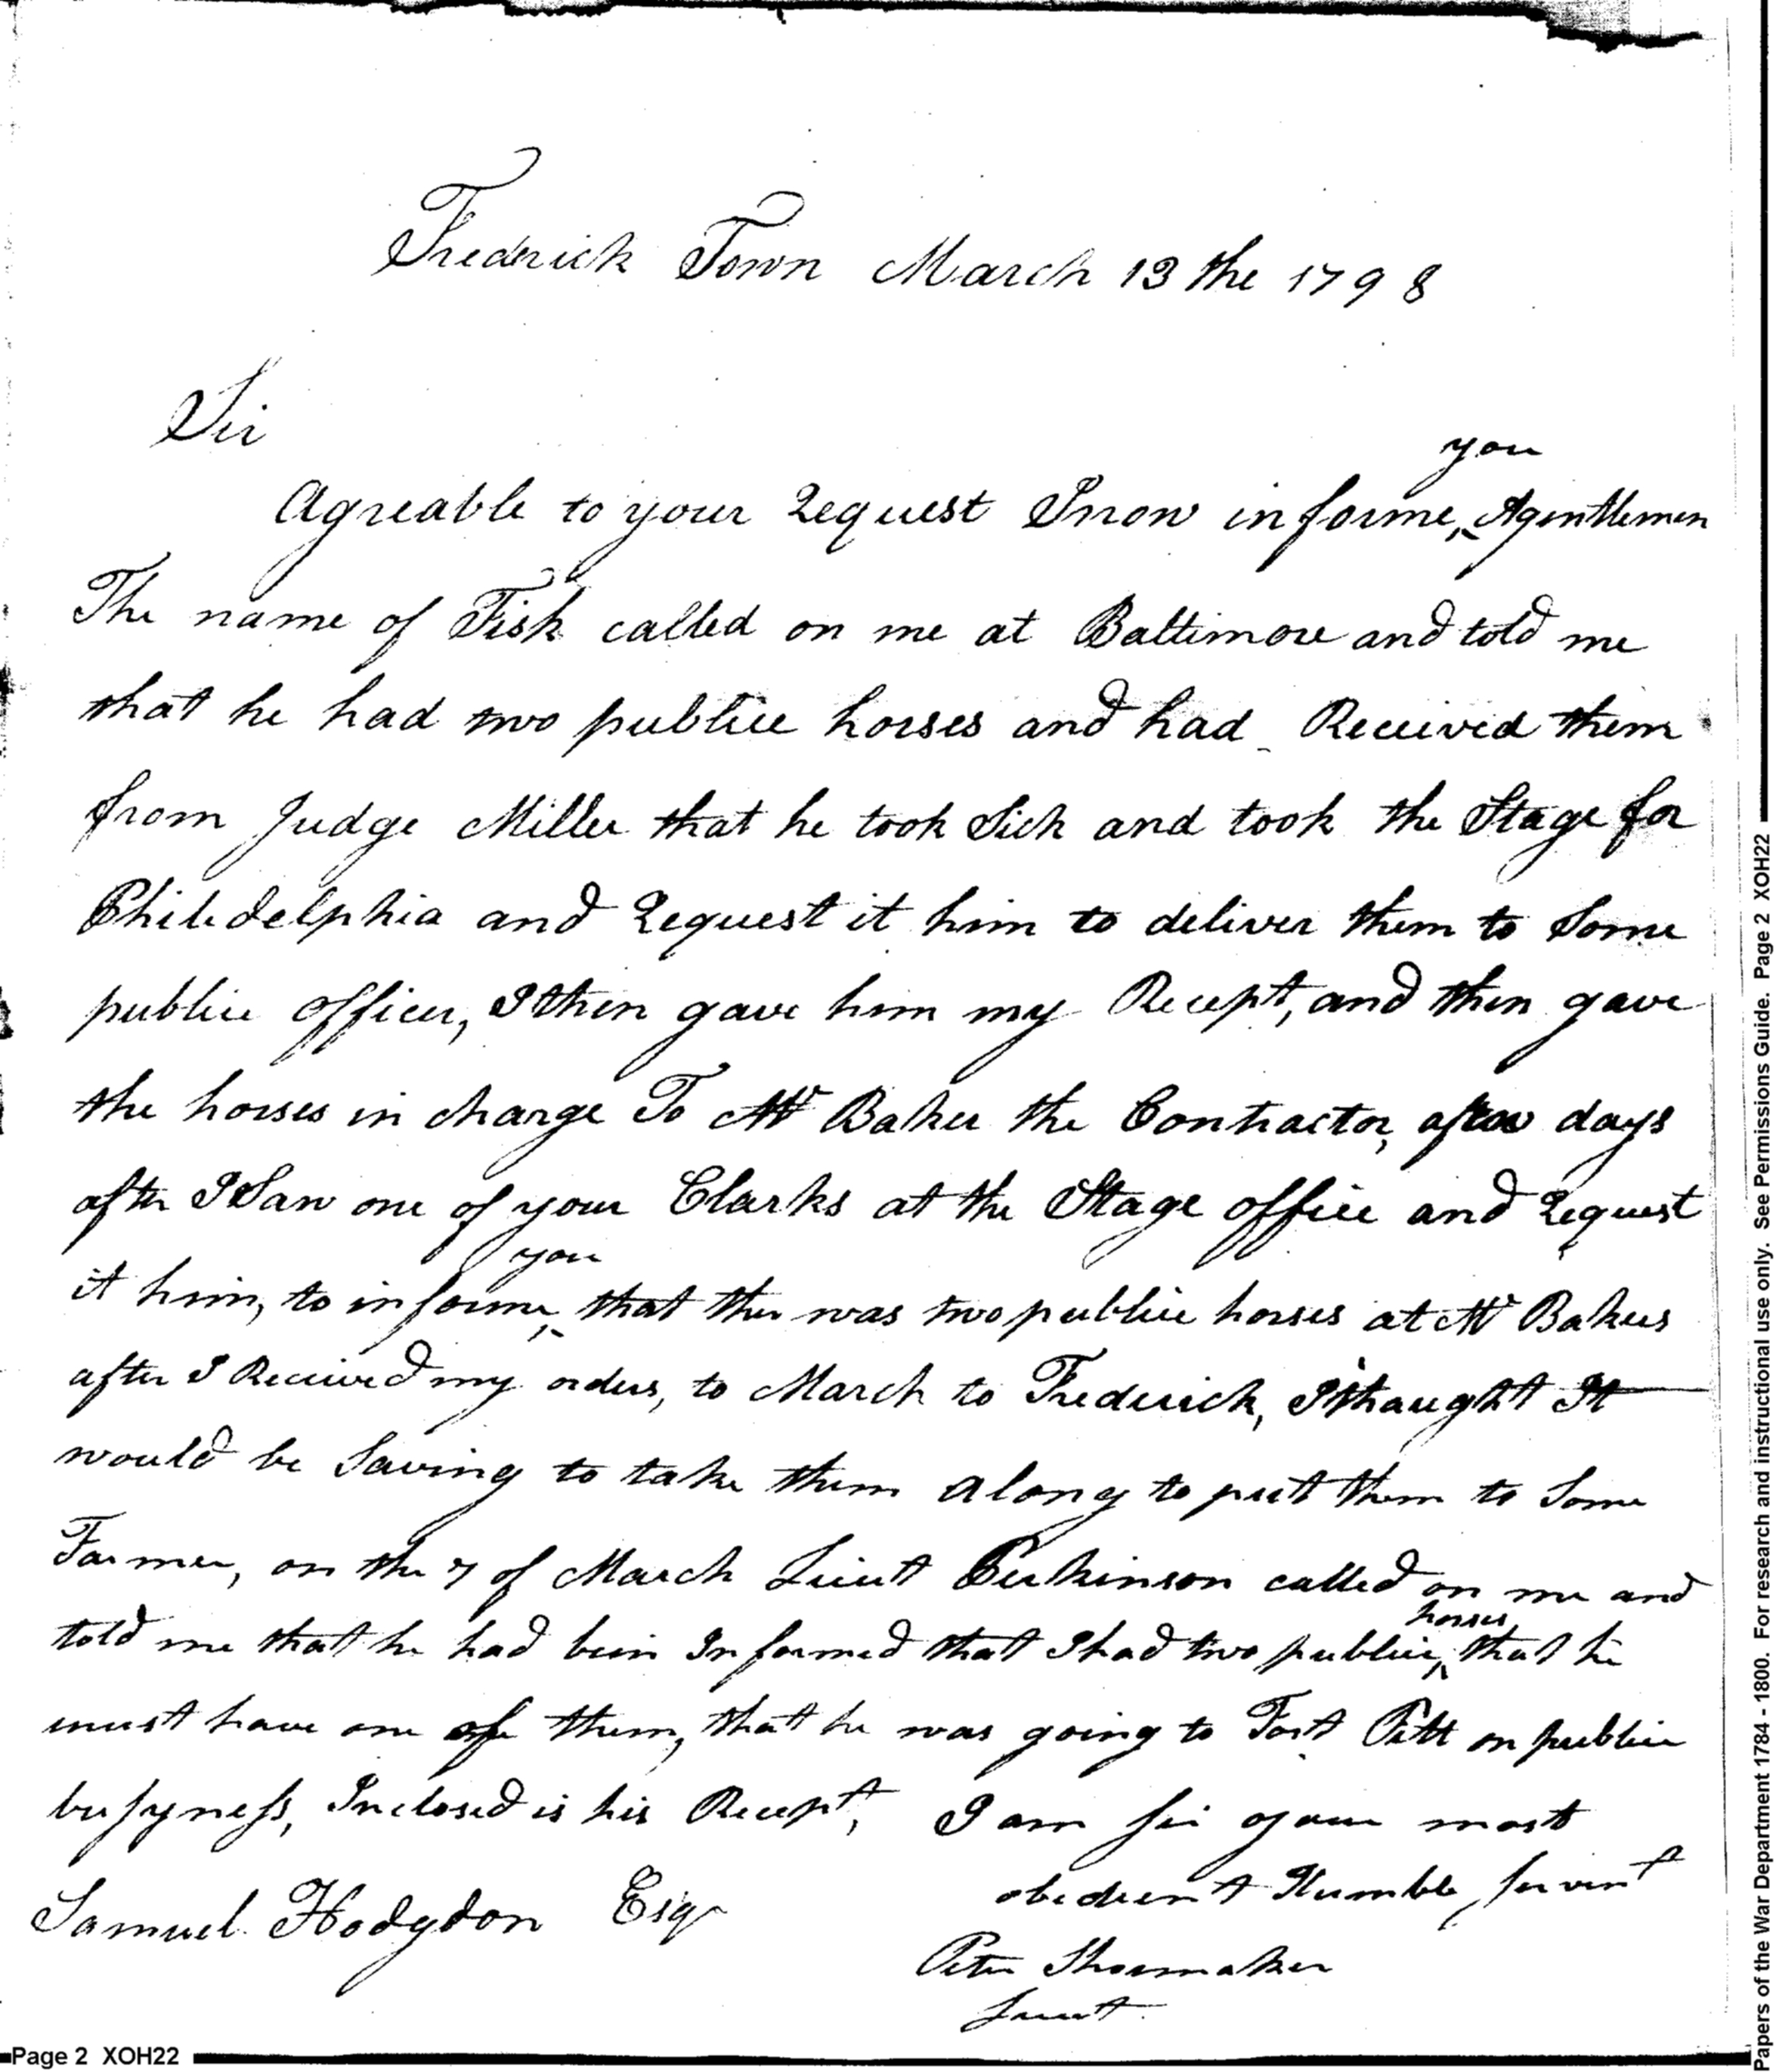 Fredrick Town March 13 the 1798
Sir
you
Agreable to your Request I now informe, A gentlemen
The name of Fisk called on me at Baltimore and told me
that he had two publice horses and had Received them
from Judge Miller that he took Sick and took the Stage for
Philedelphia and Request it him to deliver them to Some
publice officer, I then gave him my Recept, and then gave
the horses in charge To Mr Baker the Contractor, a few days
after I Saw one of your Clarks at the Stage office and Request
you
it him, to informe that ther was two publice horses at Mr Bakers
after I Received my orders, to March to Frederick, I thaught It
would be Saving to take them along to put them to Some
Farmer, on the 7 of March Lieut Perkinson called on me and
horses
told me that he had bein Informed that I had two publice, that he
must have one of them, that he was going to Fort Pitt on publice
busyness, Inclosed is his Recept, I am sir your most
obedient Humble servent
Samuel Hodgdon Esqr
Peter Shoemaker
Lieut
Page 2 XOH22
Papers of the War Department 1784 - 1800. For research and instructional use only. See Permissions Guide. Page 2 XOH22